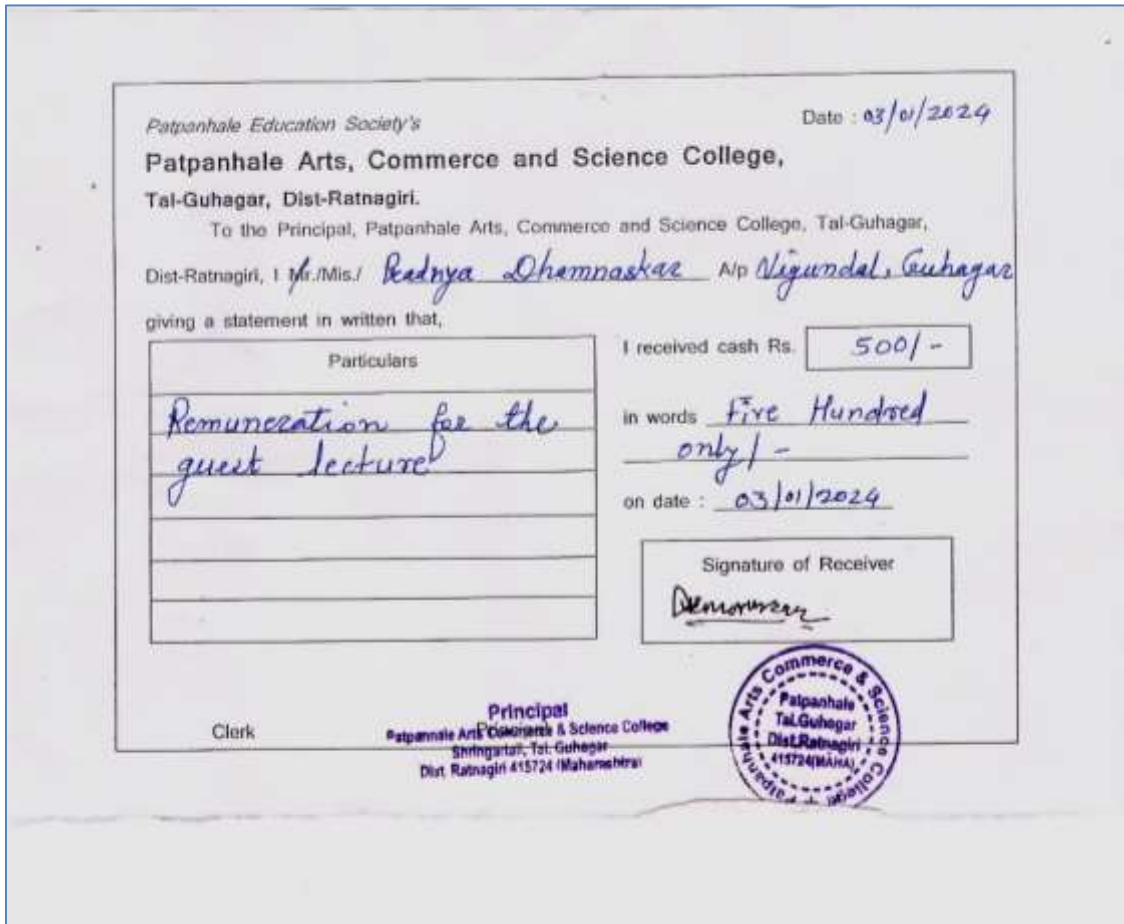 Patpanhale Education Society's
Date : 03/01/2024
Patpanhale Arts, Commerce and Science College,
Tal-Guhagar, Dist-Ratnagiri.
To the Principal, Patpanhale Arts, Commerce and Science College, Tal-Guhagar,
Dist-Ratnagiri, I Mr./Mis./ Pradnya Dhamnaskar A/p Vigundal, Guhagar
giving a statement in written that,
Particulars
Remuneration for the
guest lecture
I received cash Rs. 500/-
in words Five Hundred
only/-
on date : 03/01/2024
Signature of Receiver
Clerk
Principal
Patpanhale Arts Commerce & Science College
Shringartali, Tal. Guhagar
Dist. Ratnagiri 415724 (Maharashtra)
Patpanhale Arts Commerce & Science College
Patpanhale
Tal.Guhagar
Dist.Ratnagiri
415724(MAHA)